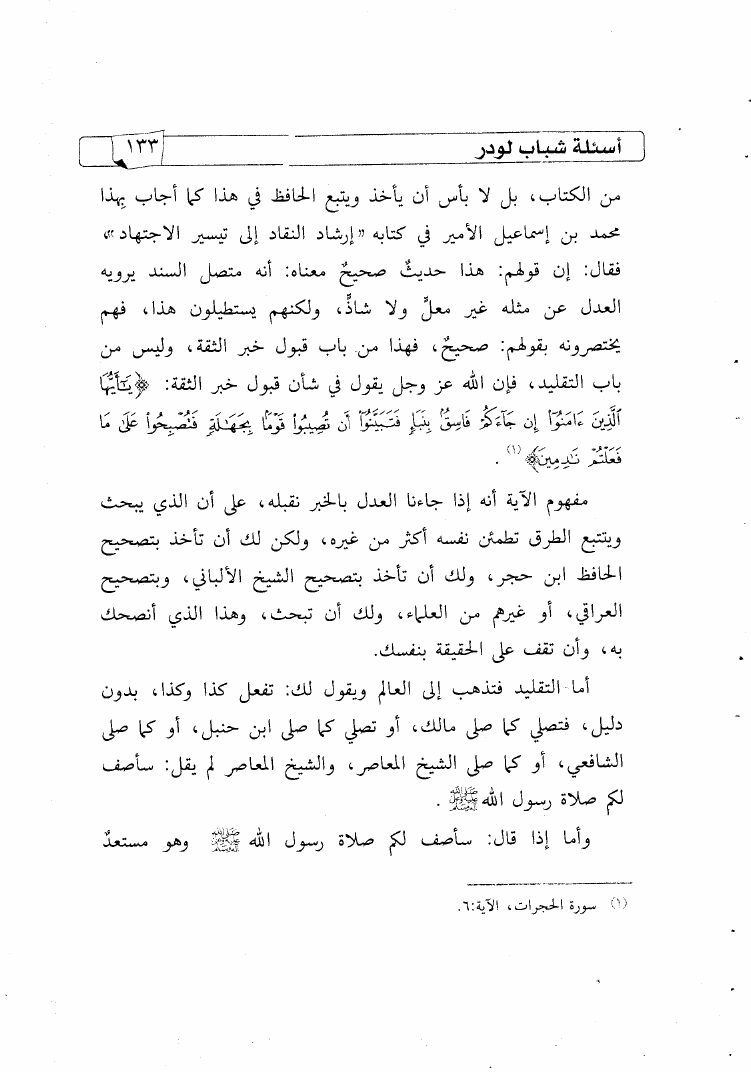 أسئلة شباب لودر ١٣٣
من الكتاب، بل لا بأس أن يأخذ ويتبع الحافظ في هذا كما أجاب بهذا
محمد بن إسماعيل الأمير في كتابه «إرشاد النقاد إلى تيسير الاجتهاد»،
فقال: إن قولهم: هذا حديثٌ صحيحٌ معناه: أنه متصل السند يرويه
العدل عن مثله غير معلٍّ ولا شاذٍّ، ولكنهم يستطيلون هذا، فهم
يختصرونه بقولهم: صحيحٌ، فهذا من باب قبول خبر الثقة، وليس من
باب التقليد، فإن الله عز وجل يقول في شأن قبول خبر الثقة: ﴿يَٰٓأَيُّهَا
ٱلَّذِينَ ءَامَنُوٓا۟ إِن جَآءَكُمْ فَاسِقٌۢ بِنَبَإٍ فَتَبَيَّنُوٓا۟ أَن تُصِيبُوا۟ قَوْمًۢا بِجَهَٰلَةٍ فَتُصْبِحُوا۟ عَلَىٰ مَا
فَعَلْتُمْ نَٰدِمِينَ﴾ (١) .
مفهوم الآية أنه إذا جاءنا العدل بالخبر نقبله، على أن الذي يبحث
ويتتبع الطرق تطمئن نفسه أكثر من غيره، ولكن لك أن تأخذ بتصحيح
الحافظ ابن حجر، ولك أن تأخذ بتصحيح الشيخ الألباني، وبتصحيح
العراقي، أو غيرهم من العلماء، ولك أن تبحث، وهذا الذي أنصحك
به، وأن تقف على الحقيقة بنفسك.
أما التقليد فتذهب إلى العالم ويقول لك: تفعل كذا وكذا، بدون
دليل، فتصلي كما صلى مالك، أو تصلي كما صلى ابن حنبل، أو كما صلى
الشافعي، أو كما صلى الشيخ المعاصر، والشيخ المعاصر لم يقل: سأصف
لكم صلاة رسول الله ﷺ .
وأما إذا قال: سأصف لكم صلاة رسول الله ﷺ وهو مستعدٌ
(١) سورة الحجرات، الآية:٦.